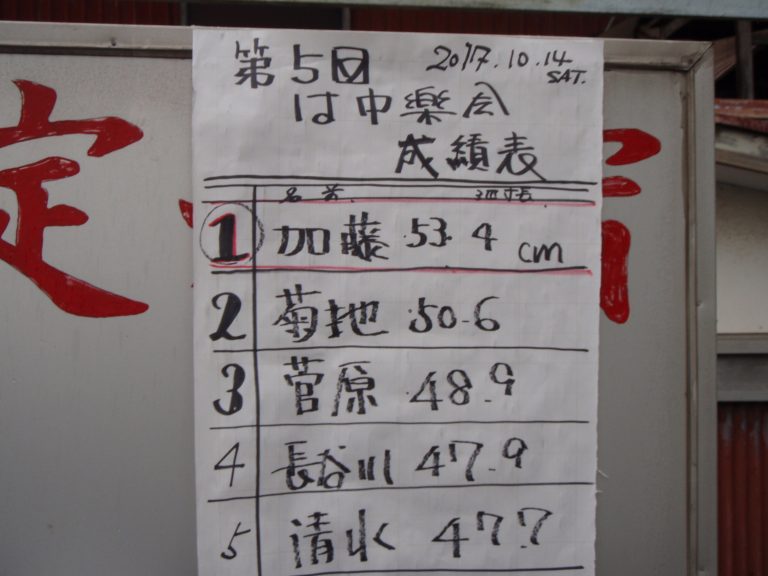 第5回 2017.10.14
SAT.
は中樂会
成績表
名前
1 加藤 53.4 cm
2 菊地 50.6
3 菅原 48.9
4 長谷川 47.9
5 清水 47.7
定